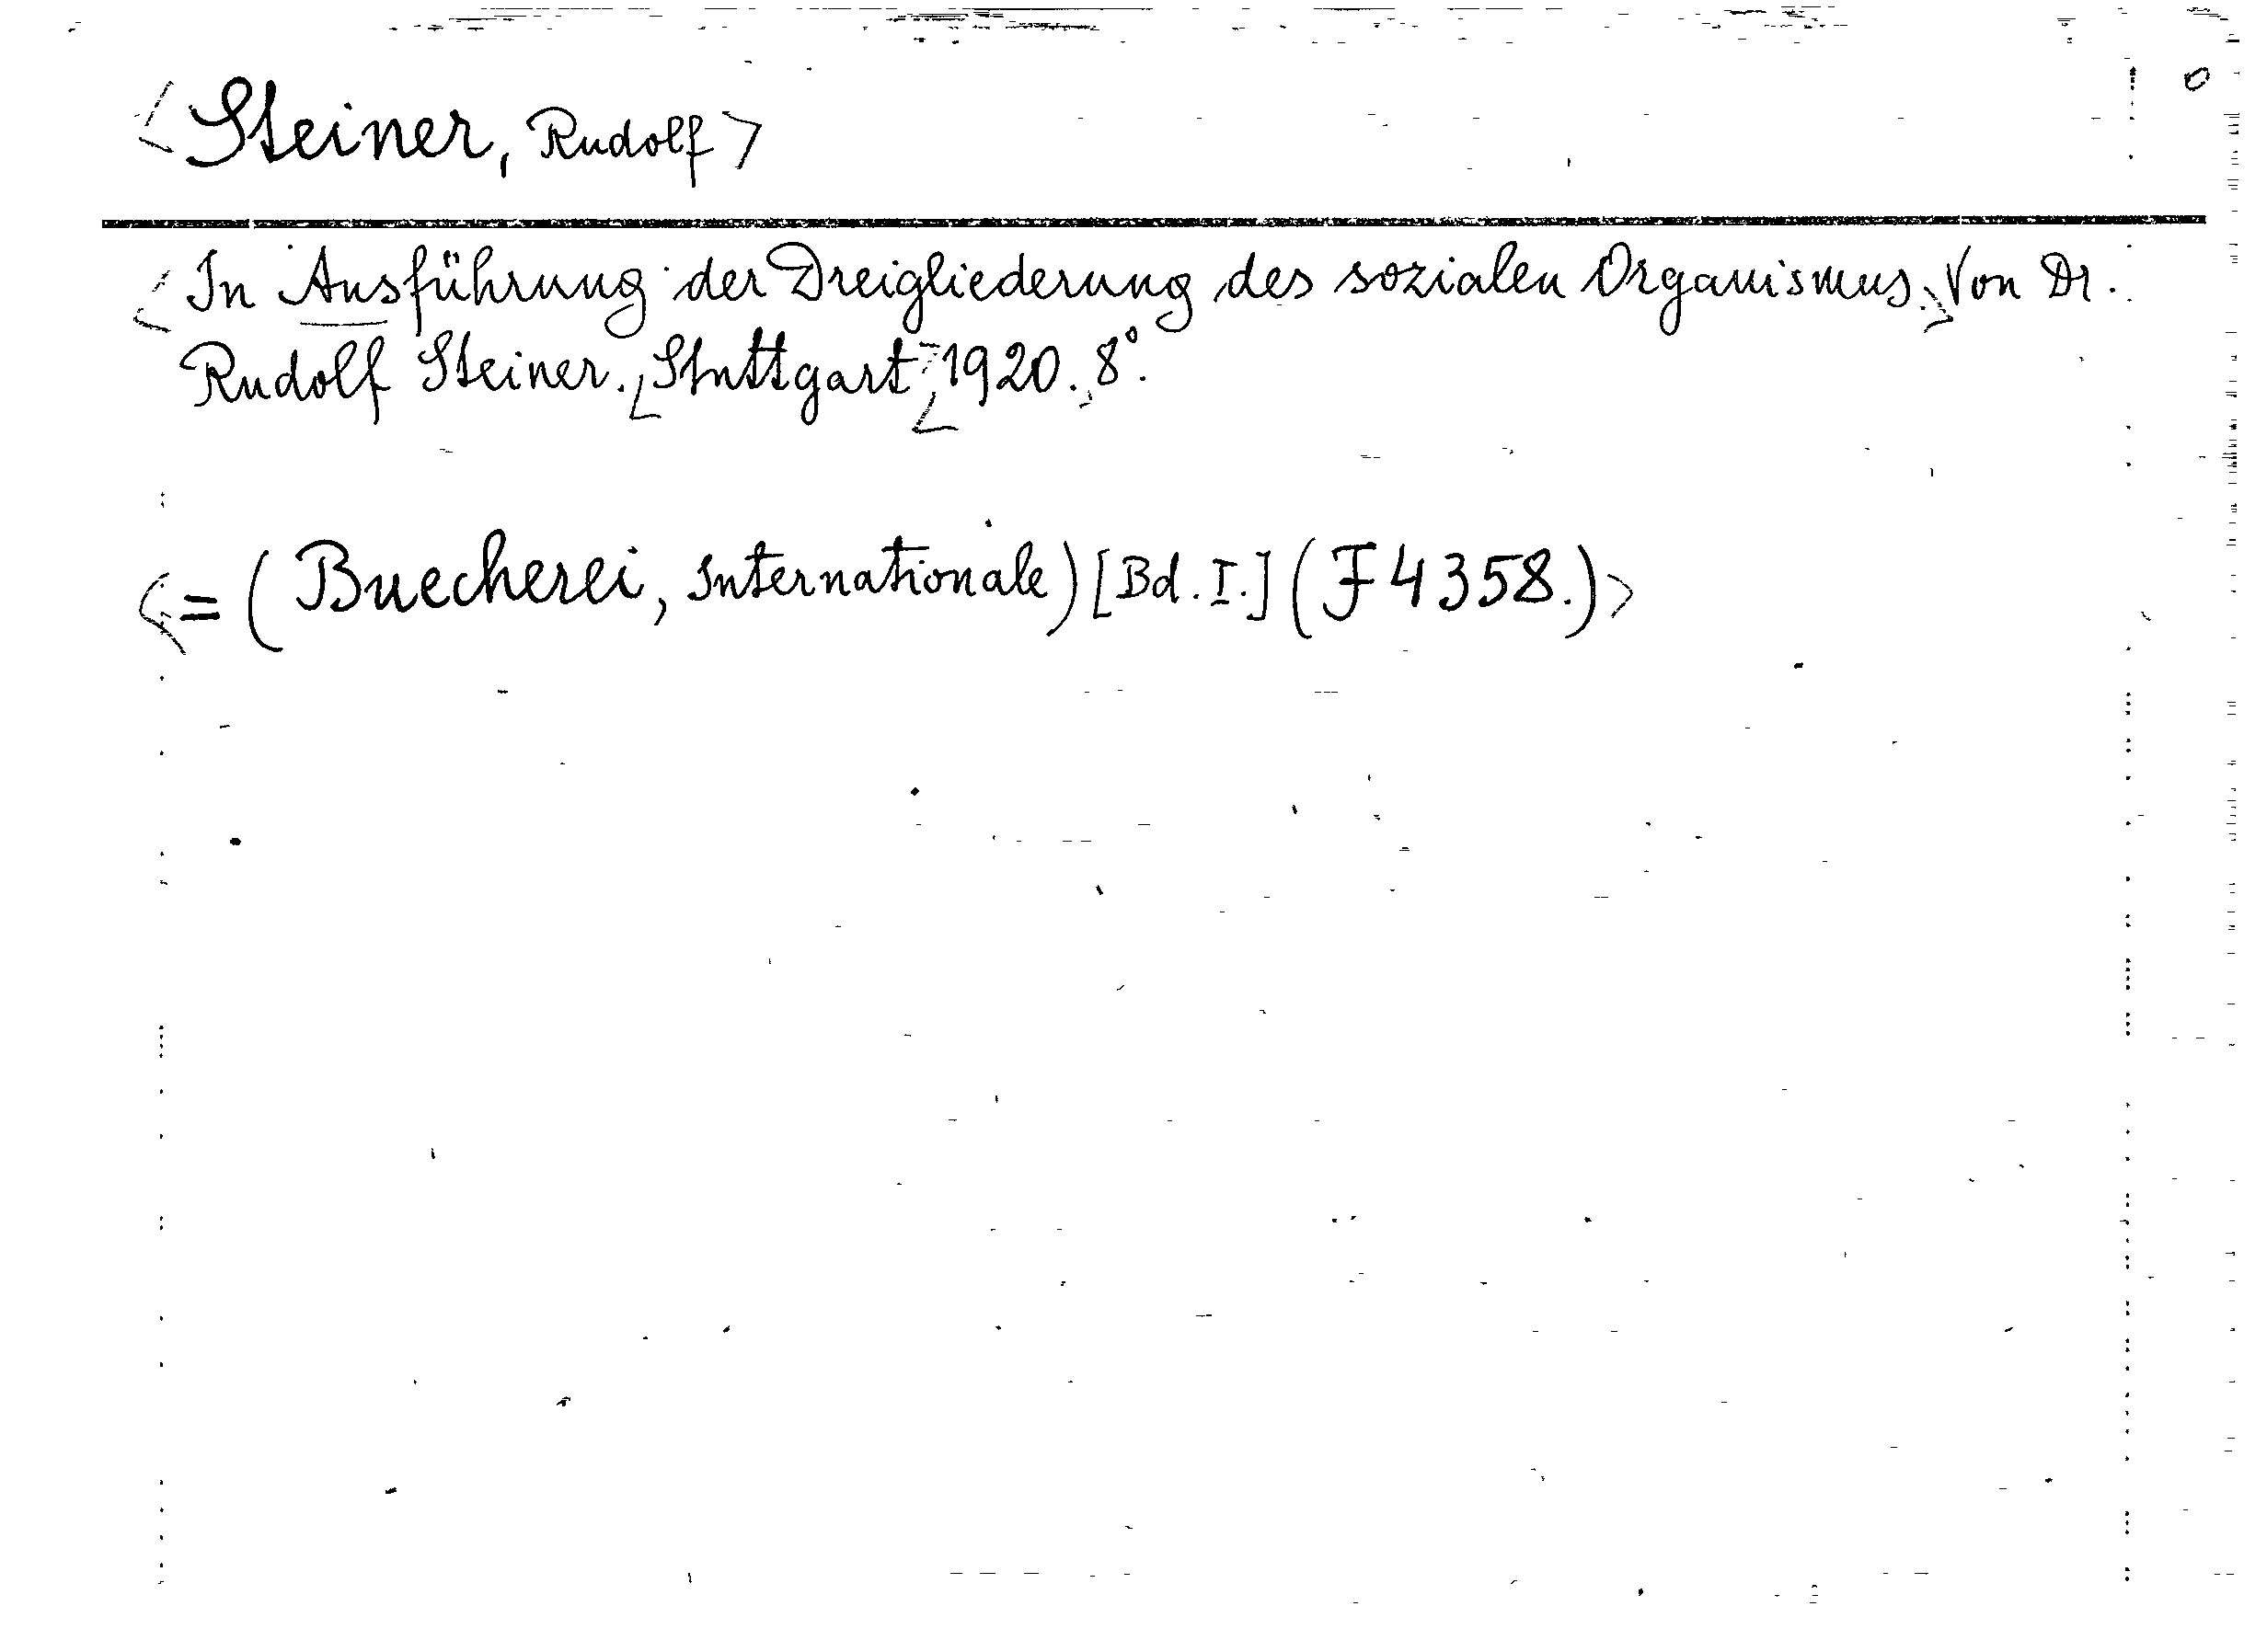 <Steiner, Rudolf> 0
<In Ausführung der Dreigliederung des sozialen Organismus.> Von Dr.
Rudolf Steiner. <Stuttgart> <1920.> 8°.
<= (Buecherei, Internationale) [Bd. I.] (F 4358.)>